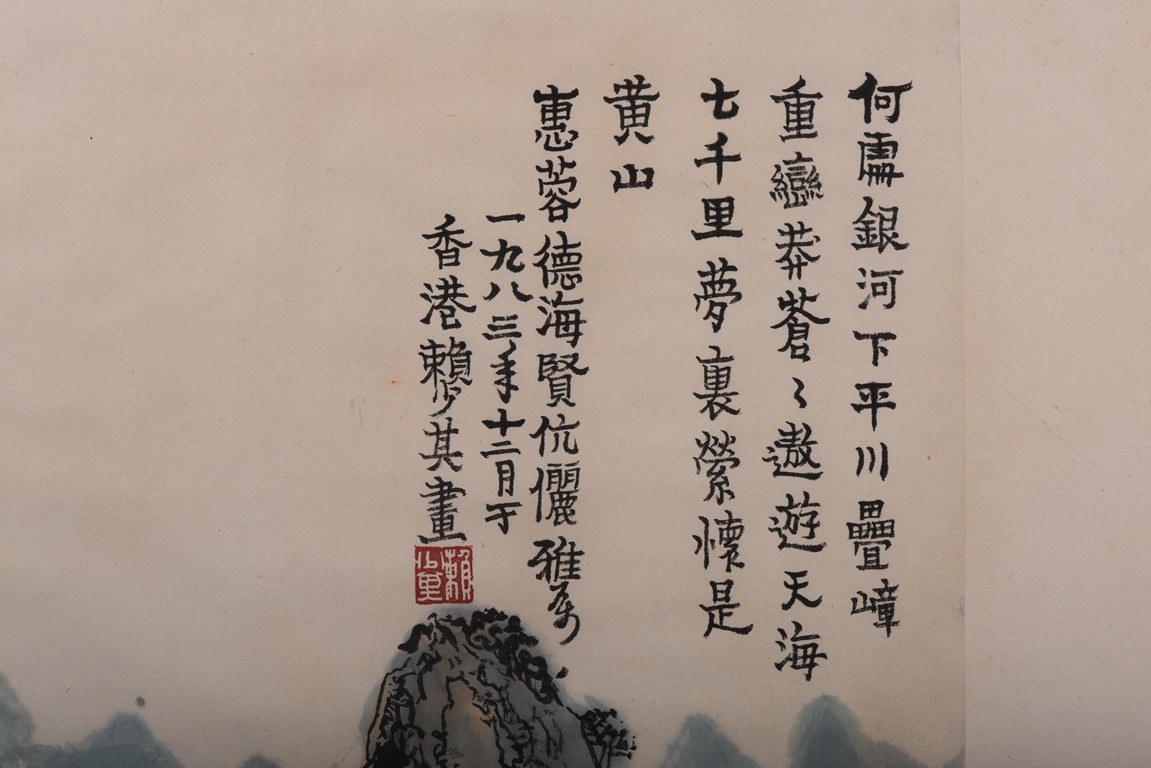 何處銀河下平川疊嶂
重巒莽蒼〻遨遊天海
七千里夢裏縈懷是
黄山
惠蓉德海賢伉儷雅属
一九八三年十二月于
香港賴少其畫
賴少其